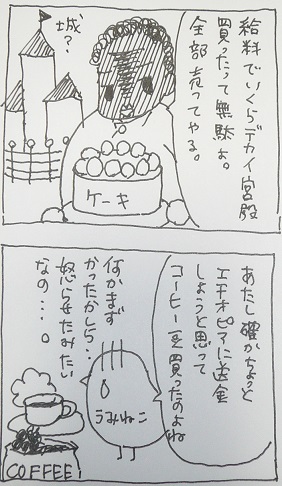 給料でいくらデカイ宮殿
買ったって無駄よ。
全部売ってやる。
城?
ケーキ
あたし確かちょっと
エチオピアに送金
しようと思って
コーヒー豆買ったのよね
何かまず
かったかしら…
怒らせたみたい
なの…。
うみねこ
COFFEE